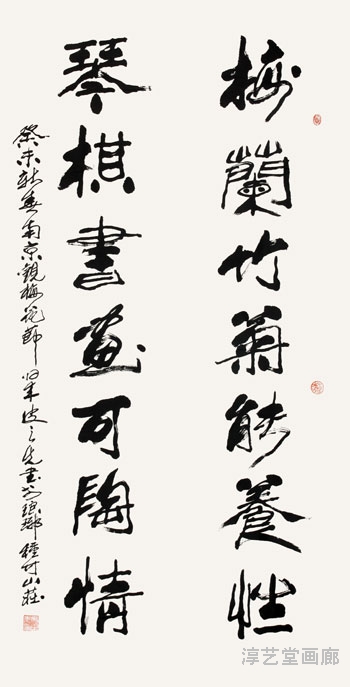 梅蘭竹菊能養性
琴棋書畫可陶情
癸未新春南京觀梅花節归来波之先書於琅琊種竹山莊
淳艺堂画廊